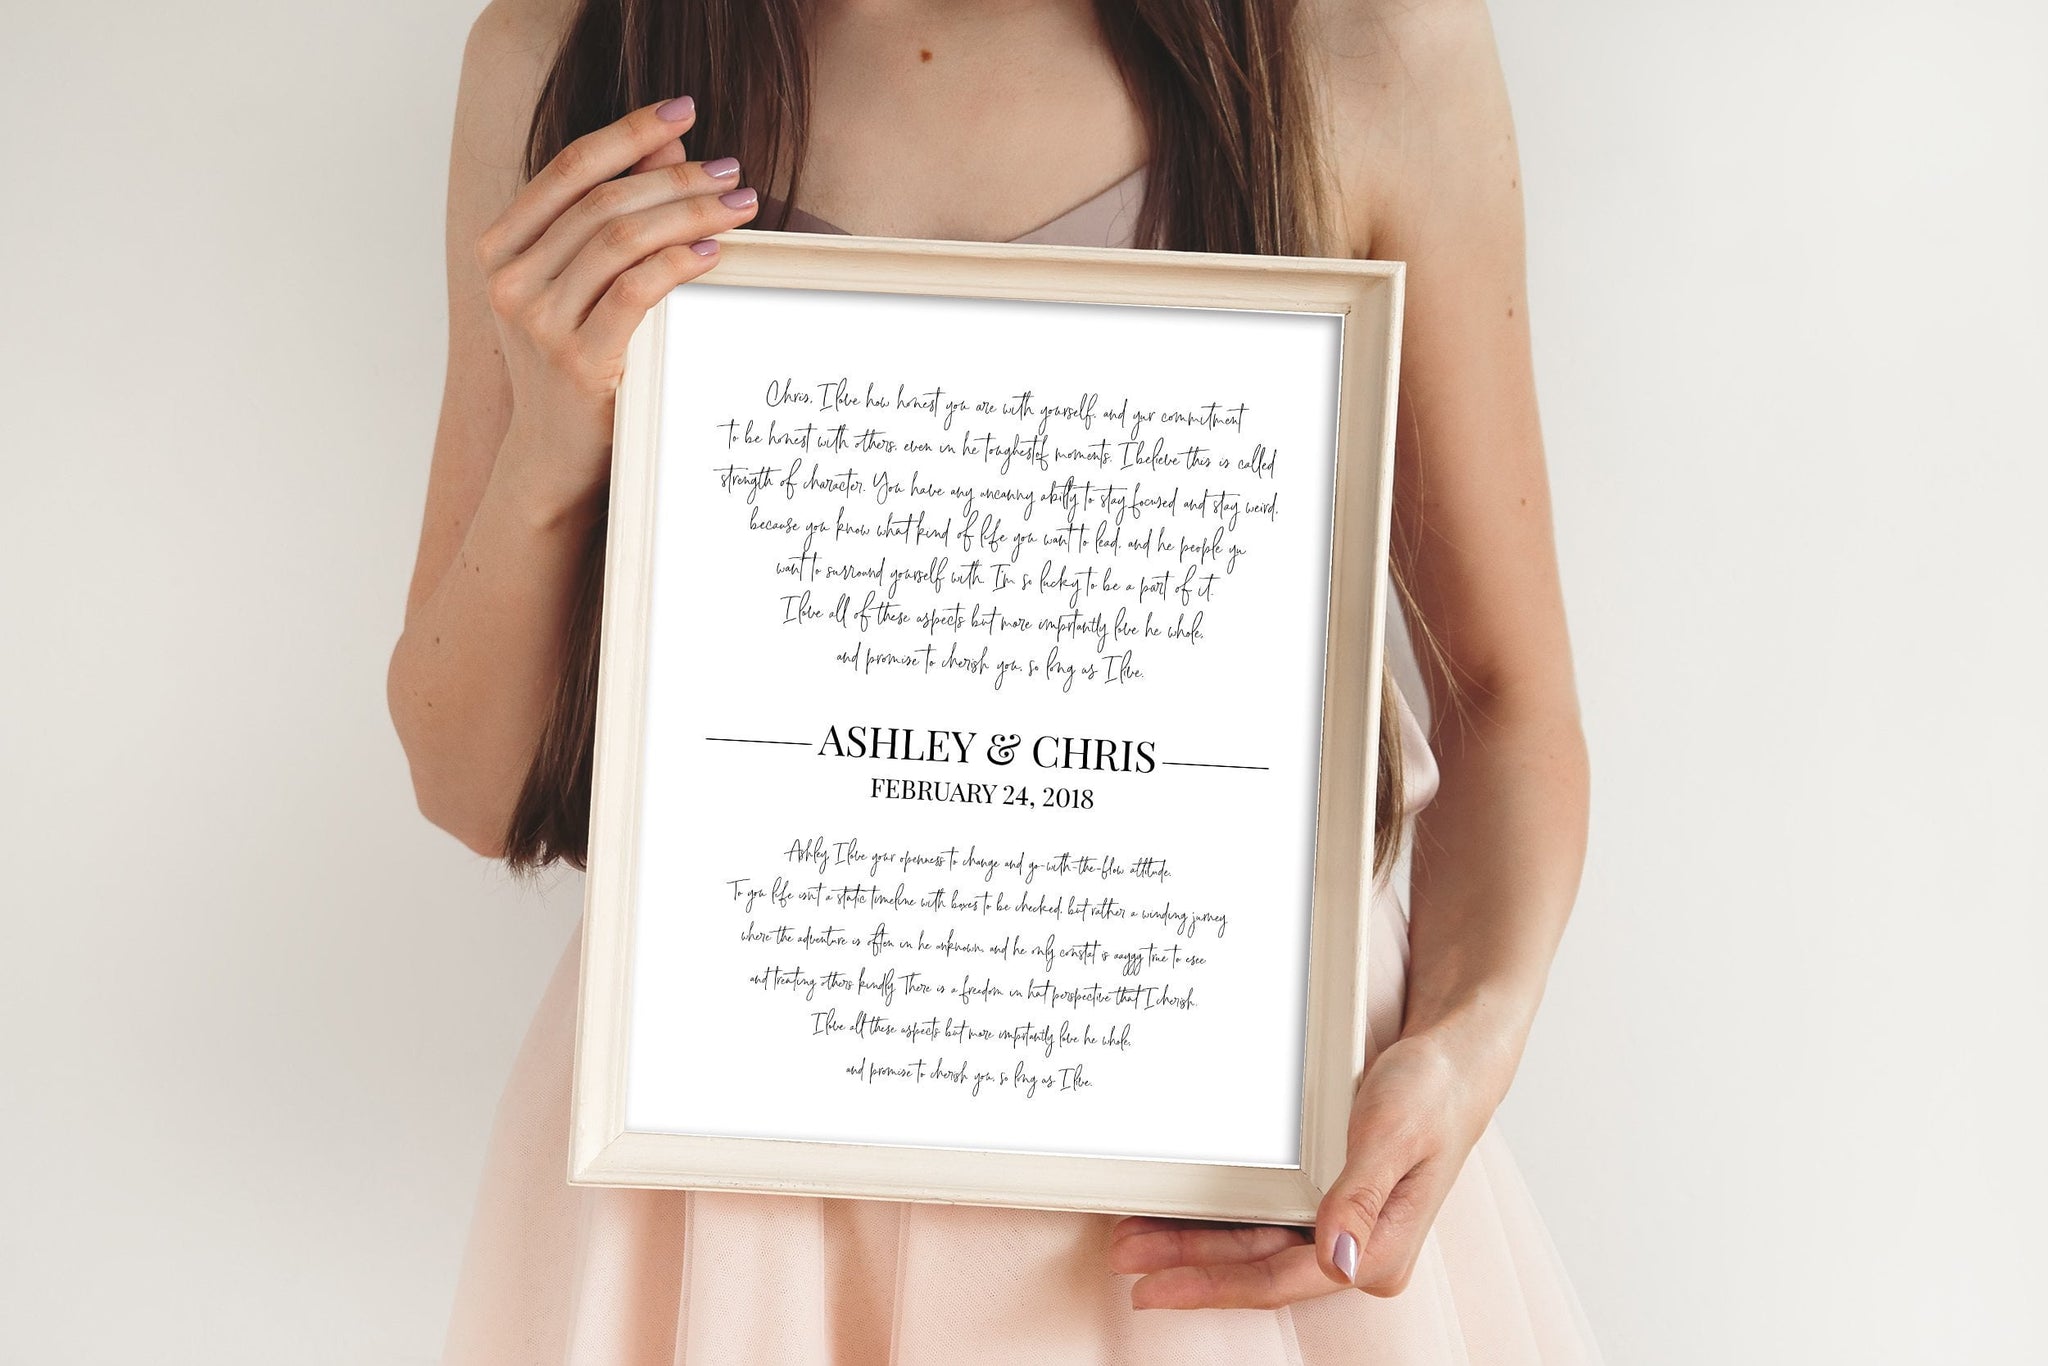 Chris, I love how honest you are with yourself, and yur commitment
to be honest with others, even in he toughestof moments. I believe this is called
strength of character. You have any uncanny ability to stay focused and stay weird,
because you know what kind of life you want to lead, and he people yu
want to surround yourself with. I'm so lucky to be a part of it.
I love all of these aspects but more imprtantly love he whole,
and promise to cherish you, so long as I live.
ASHLEY & CHRIS
FEBRUARY 24, 2018
Ashley I love your openness to change and go-with-the-flow attitude.
To you life isn't a static timeline with boxes to be checked, but rather a winding jurney
where the adventure is often in he unknown, and he only constat is true to
and treating others kindly There is a freedom in hat perspective that I cherish.
I love all these aspects but more imprtantly love he whole,
and promise to cherish you, so long as I live.